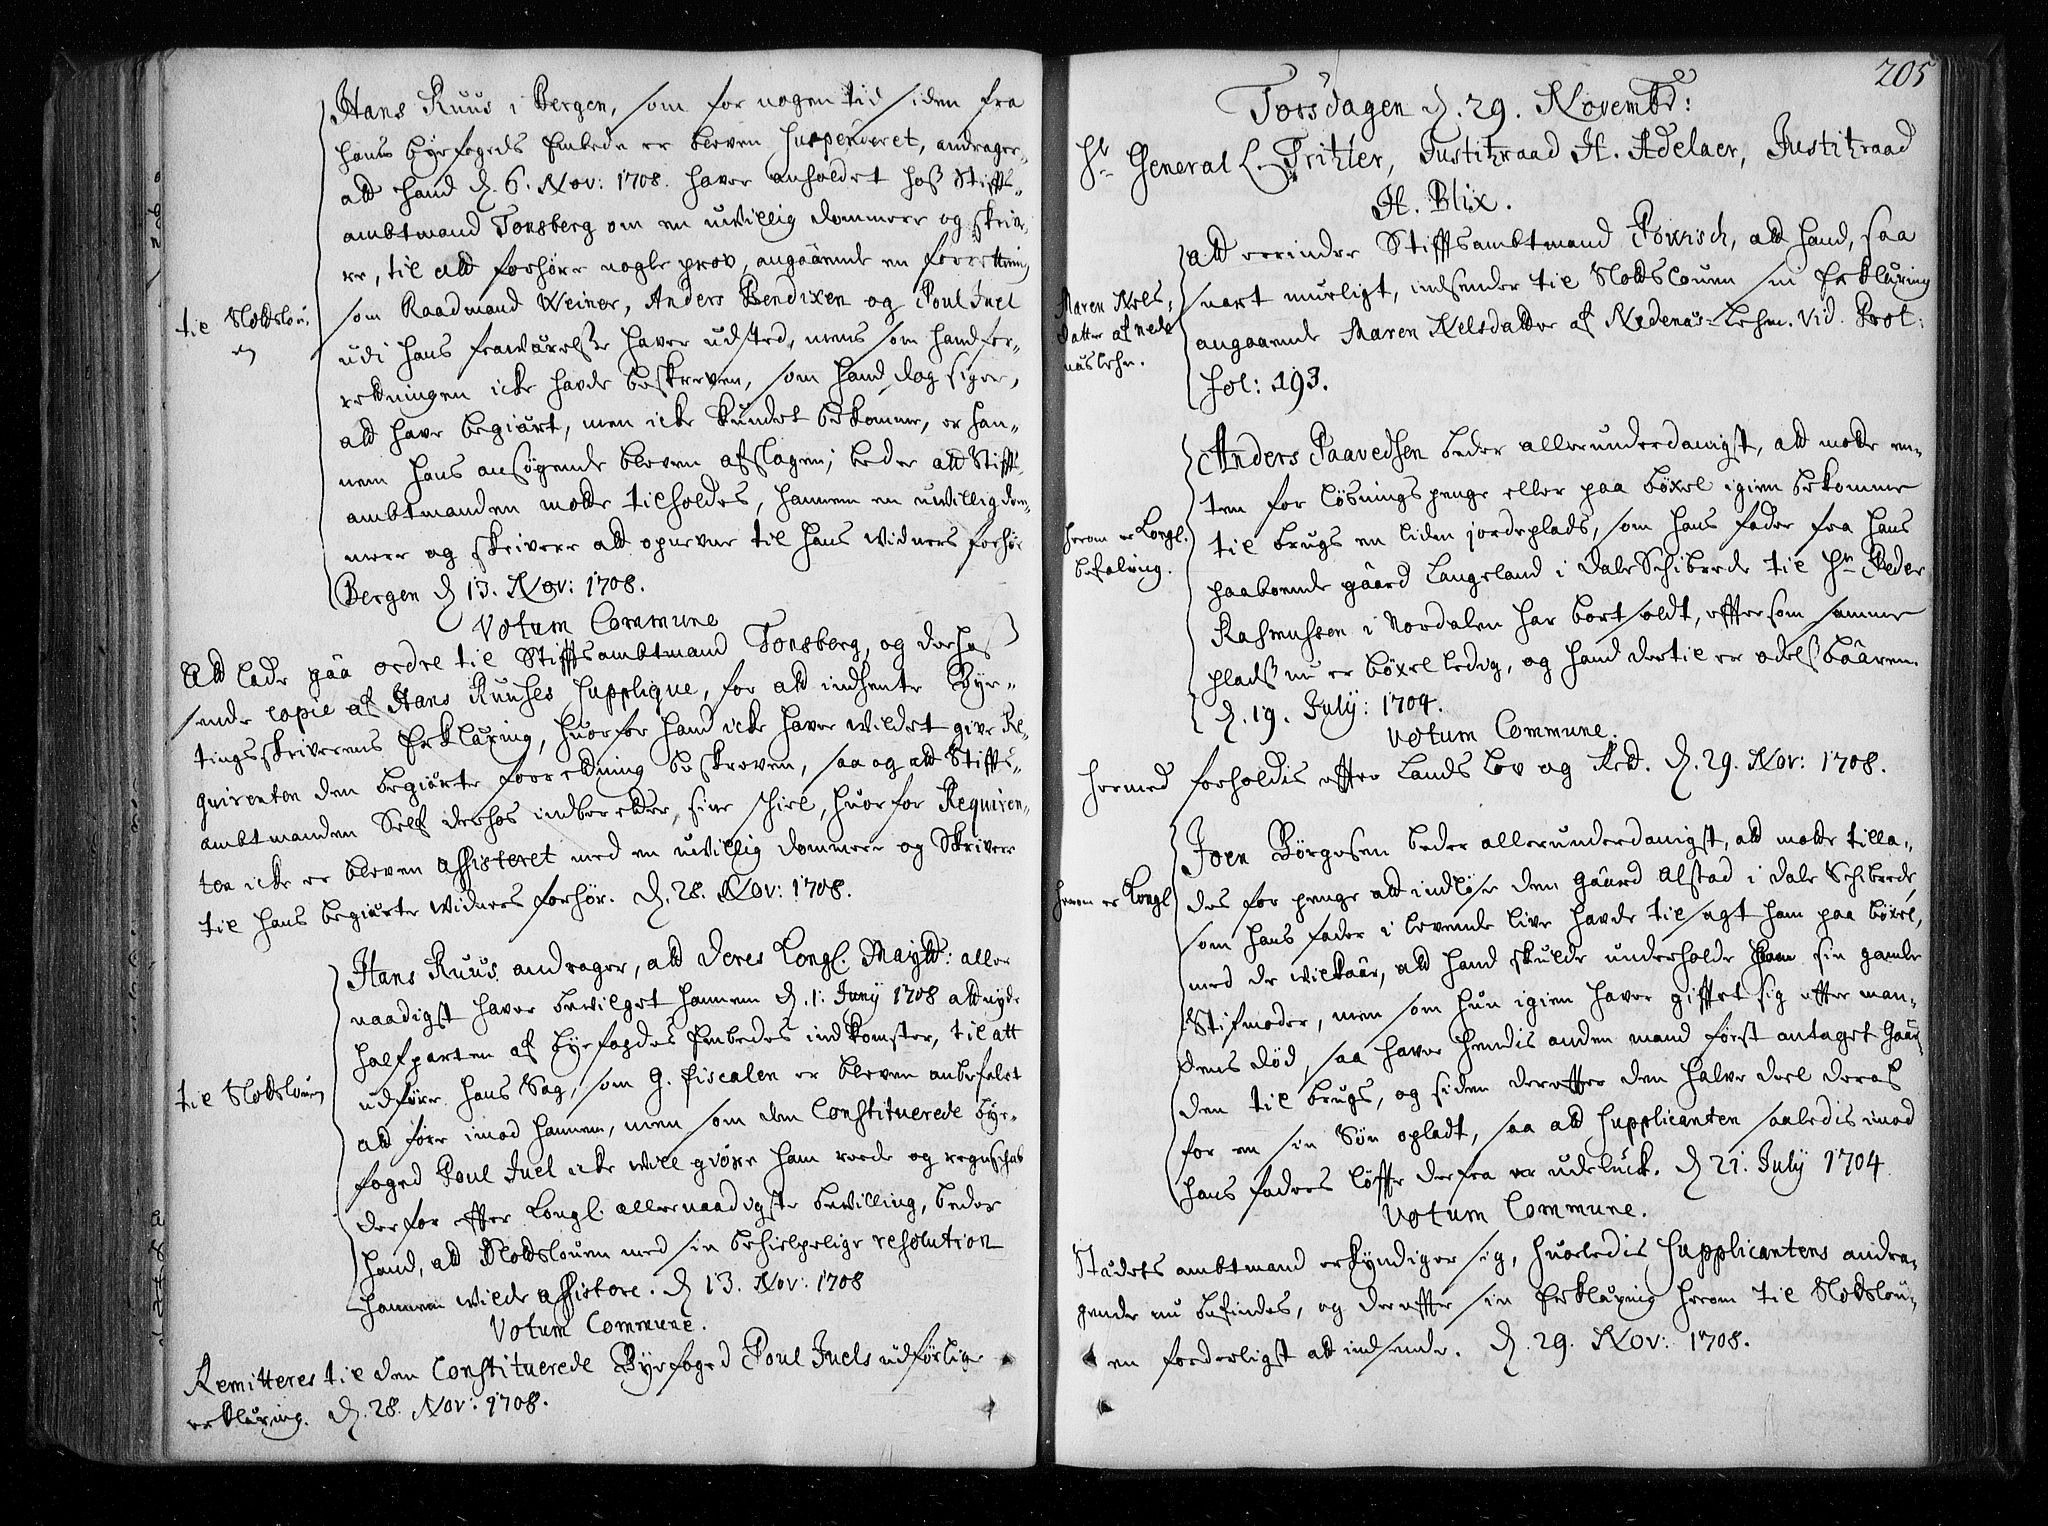 Hans Ruus i Bergen, som for nogen tid siden fra
hans byefogeds Embede er bleven suspenderet, andrager,
att hand d. 6. Nov: 1708. haver anholdet hoß Stiffts-
ambtmand Tonsberg om en uwillig dommere og skrive-
re, til att forhöre nogle prov, angaaende en forretning
som Raadmand Weiner, Anders Bendixen og Poul Juel
til Slottslou-
en
udi hans frawærelse haver udsted, mens som hand for-
retningen icke havde beskreven, som hand dog siger,
att have begiært, men icke kundet bekomme, er han-
nem hans ansögende bleven afslagen; beder att Stiffts-
ambtmanden motte tilholdes, hannem en uwillig dom-
mere og skrivere att opnevne til hans widners forhör
Bergen d. 13. Nov: 1708.
Votum Commune
Att lade gaa ordre til Stifftsambtmand Tonsberg, og derhoß
sende copie af Hans Ruuses supplique, for att indhente Bye-
tingsskriverens Erklæring, huorfor hand icke haver wildet give Re-
quirenten den begiærte forretning beskreven, saa og att Stiffts-
ambtmanden Self derhos indberetter, sine skiel, huorfor Requiren-
ten icke er bleven assisteret med en uwillig dommere og Skrivere
til hans begiærte widners forhör. d. 28. Nov: 1708.
Hans Ruus andrager, att Deres Kongl. Maytt: aller
naadigst haver bewilget hannem d. 1. Juny 1708 att nyde
halfparten af byefogdes Embedes indkomster, til att
udföre hans Sag, som G. fiscalen er bleven anbefalet
til Slottslouen
att före imod hannem, men som den Constituerede bye-
foged Poul Juel icke will giöre ham reede og regnschab
derfor effter Kongl. allernaadigste bewilling, beder
hand, att Slottslouen med sin behielpelige resolution
hannem wilde assistere. d. 13. Nov: 1708
Votum Commune.
Remitteres til den Constituerede Byefoged Poul Juels udförlige
erklæring. d. 28. Nov: 1708.
205
Torsdagen d. 29. Novembr:
Hr General L. Tritzler, Justitzraad H. Adelaer, Justitzraad
H. Blix.
att erindre Stifftsambtmand Powisch, att hand, saa
snart mueligt, indsender til Slottslouen sin Erklæring
Maren Nels-
datter af Nede
næslehn.
angaaende Maren Nelsdatter af Nedenæs-Lehn. Vid. Prot:
fol: 193.
Anders Paavedsen beder allerunderdanigst, att motte en-
ten for lösnings penge eller paa böxel igien bekomme
herom er Kongl.
befaling.
til brugs en liden jordeplads, som hans fader fra hans
paaboende gaard Langeland i Dale Schibrede til Hr Peder
Rasmussen i Nordalen har bortsoldt, effter som samme
plads nu er böxel ledig, og hand dertil er odels baaren.
d. 19. July: 1704.
Votum Commune.
hermed forholdis effter Lands Lov og Ret. d. 29. Nov: 1708.
Joen Börgesen beder allerunderdanigst, att motte tilla-
herom er Kongl
des for penge att indlöse den gaard Alstad i Dale Schibrede,
som hans fader i levende live havde tilsagt ham paa böxel,
med de wilkaar, att hand skulde underholde sin gamle
Stifmoder, men som hun igien haver gifftet sig effter man-
dens död, saa haver hendis anden mand först antaget Gaar-
den til brugs, og siden dereffter den halve deel deraf
for en sin Sön opladt, saa att supplicanten saaledis imod
hans faders löffte derfra er udeluckt. d. 21. July 1704
Votum Commune.
Stædets ambtmand erkyndiger sig, huorledis supplicantens andra-
gende nu befindes, og dereffter sin Erklæring herom til Slottslou-
en forderligst att indsende. d. 29. Nov: 1708.